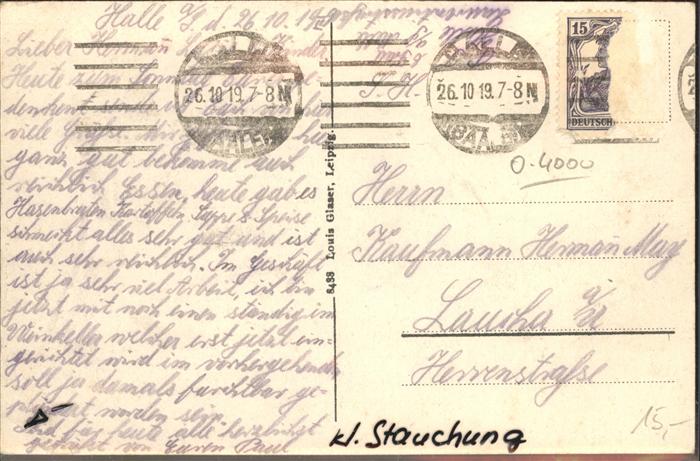 Halle a/S d. 26.10.19
Lieber Hermann
Heute zum Sonntag
viele Grüße. Wir
ganz gut bekomme auch
reichlich Essen, heute gab es
Hasenbraten Kartoffeln Suppe & Speise
schmeckt alles sehr gut und ist
auch sehr reichlich. Im Geschäft
ist ja sehr viel Arbeit, ich bin
jetzt mit noch einen ständig im
Weinkeller welcher erst jetzt ein-
gerichtet wird im vorhergehenden
soll ja damals furchtbar ge-
plündert worden sein.
Und für heute alle herzlichst
gegrüßt von Euren Paul
HALLE
26.10.19.7-8 N
(SAALE)
HALLE
26.10.19.7-8 N
(SAALE)
15
DEUTSCH
0.4000
8438 Louis Glaser, Leipzig.
Herrn
Kaufmann Hermann May
Laucha a/U
Herrenstraße
15,-
kl. Stauchung